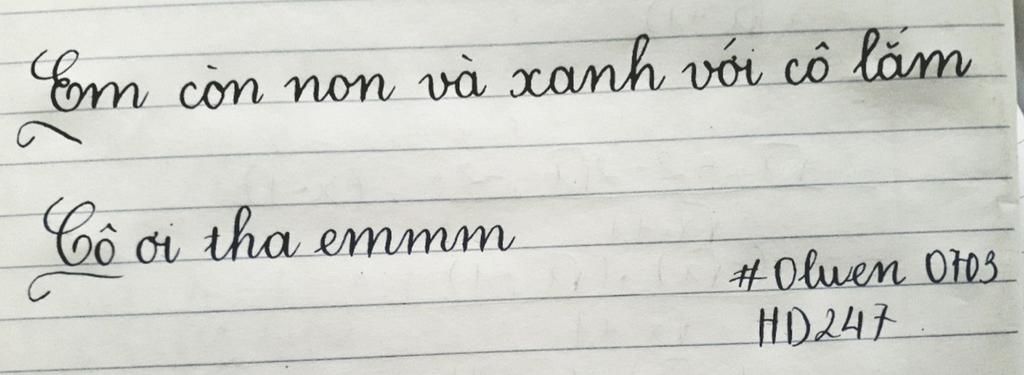 Em còn non và xanh với cô lắm
Cô ơi tha emmm
#Olwen 0703
HD247